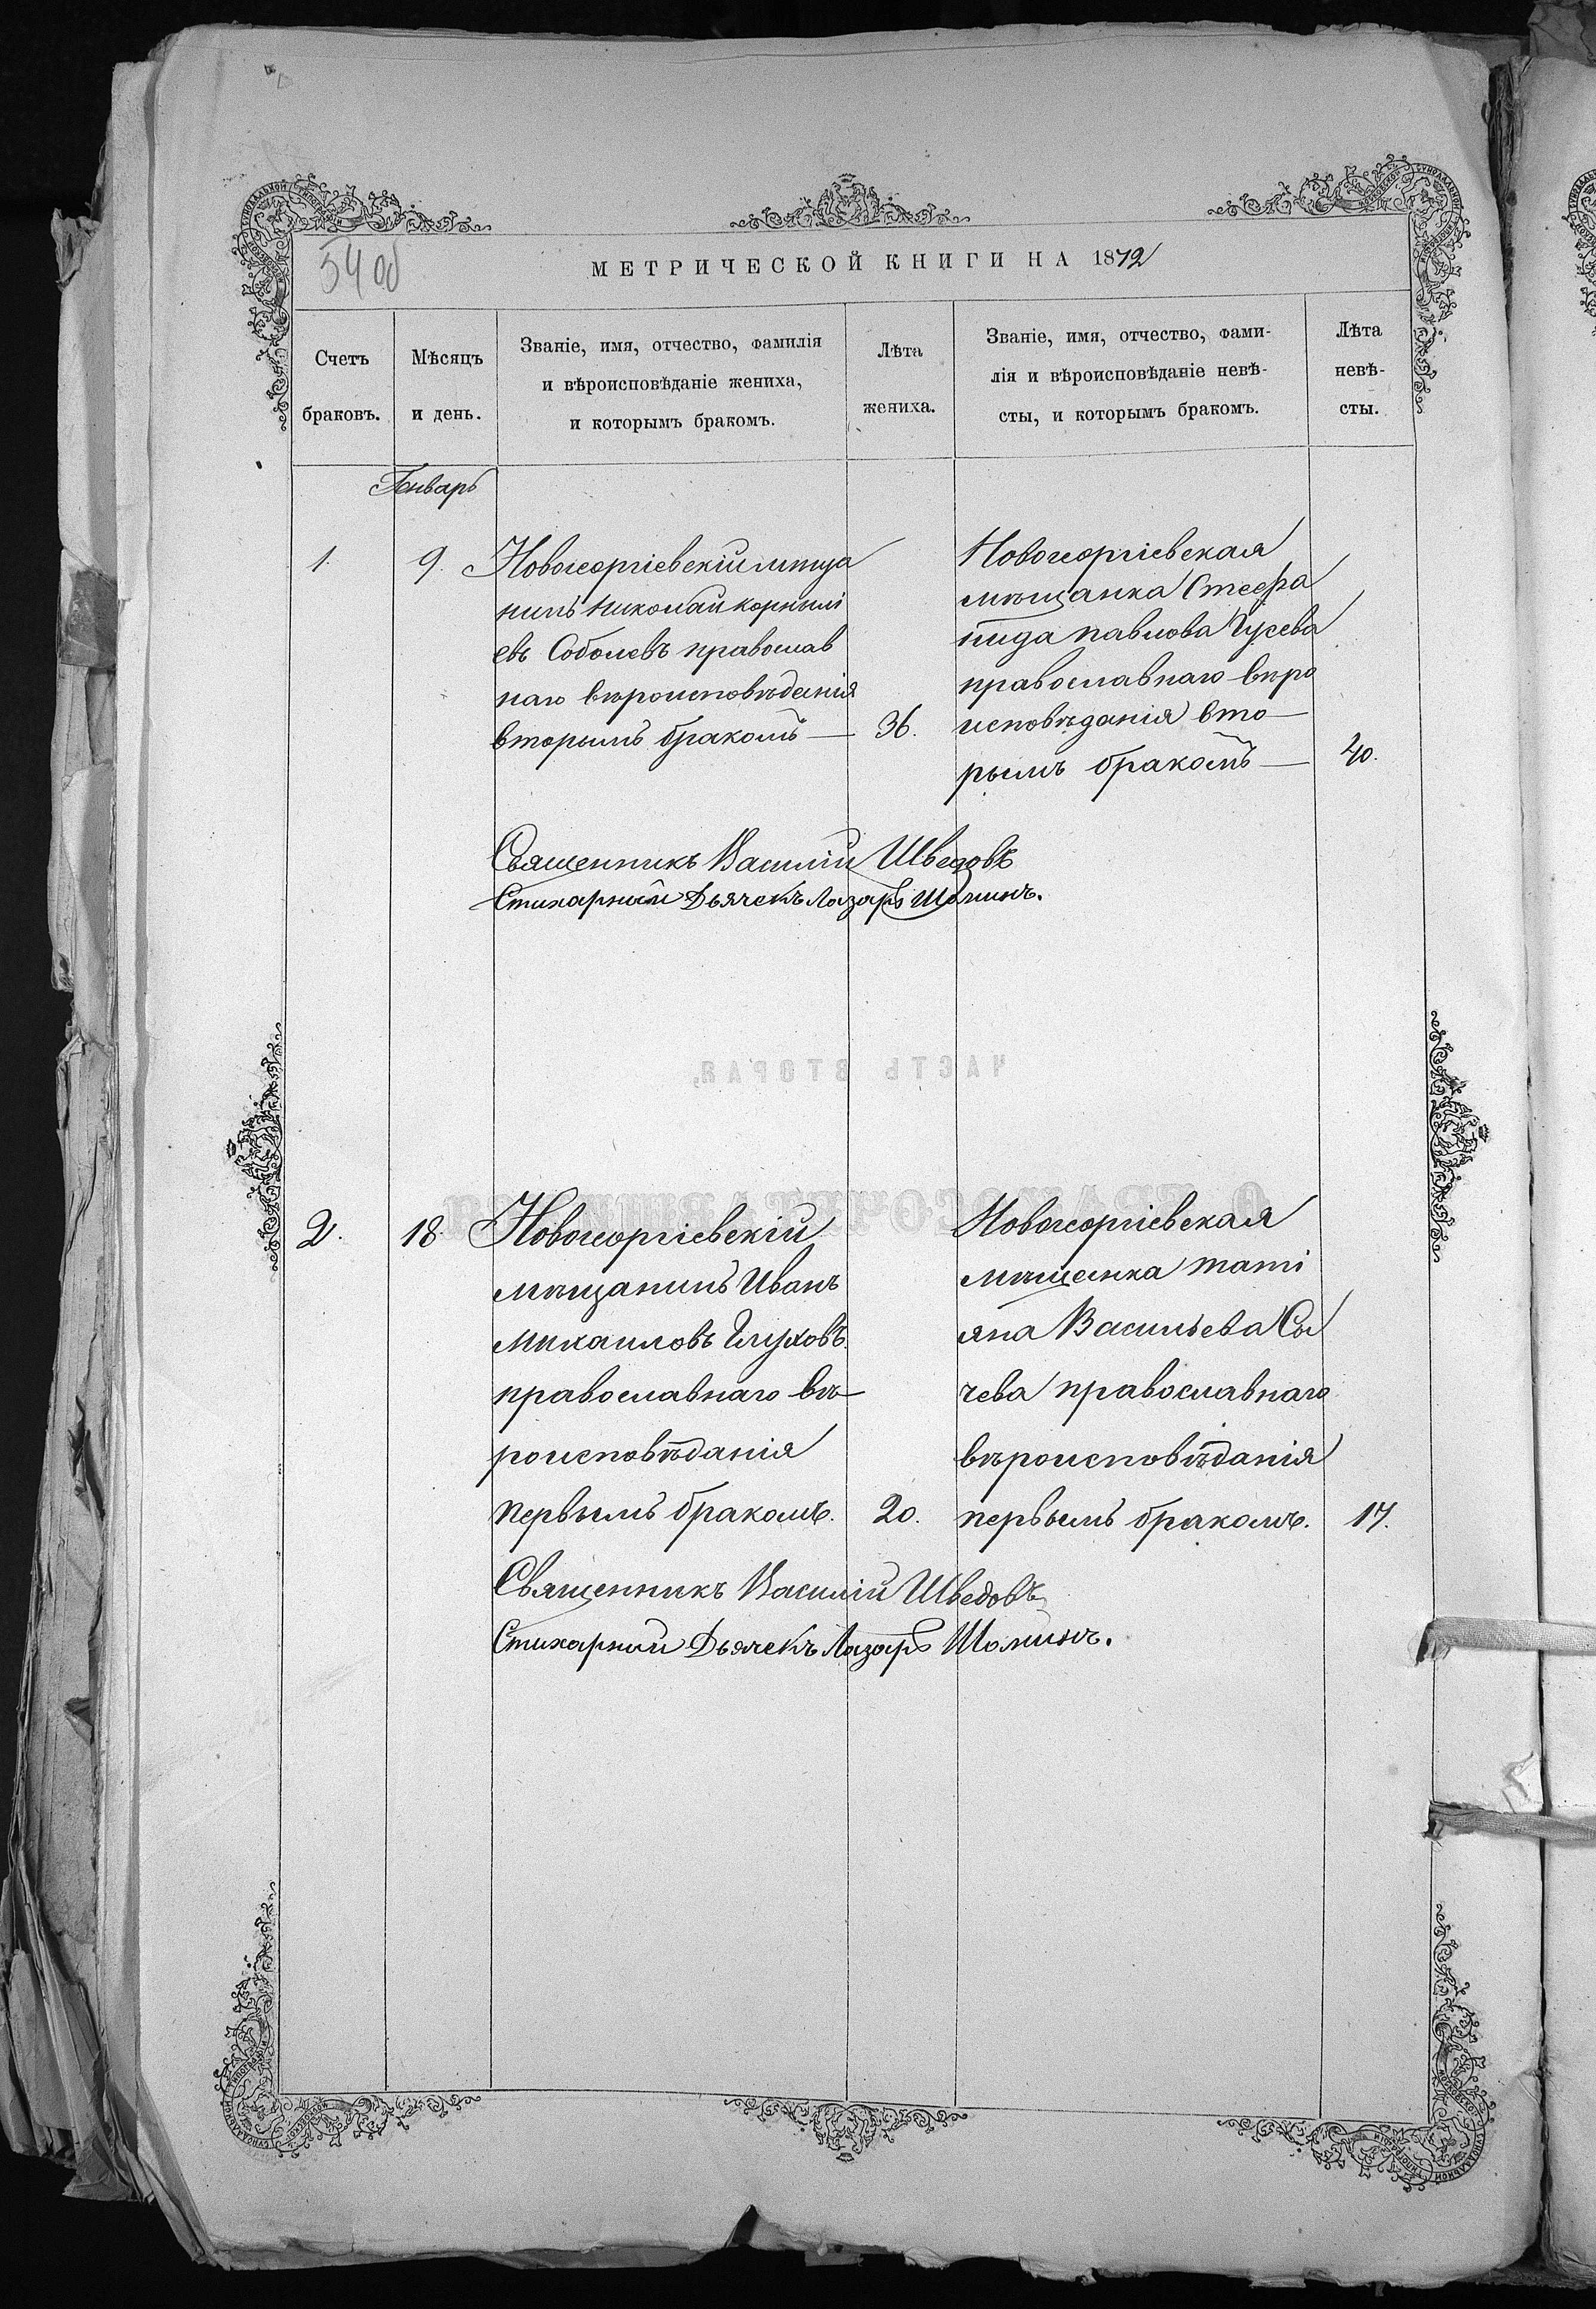 54 об
МЕТРИЧЕСКОЙ КНИГИ НА 1872
Счетъ
браковъ.
Мѣсяцъ
и день.
Званіе, имя, отчество, фамилія
и вѣроисповѣданіе жениха,
и которымъ бракомъ.
Лѣта
жениха.
Званіе, имя, отчество, фами-
лія и вѣроисповѣданіе невѣ-
сты, и которымъ бракомъ.
Лѣта
невѣ-
сты.
Январь
1.
9.
Новогеоргіевскій мѣща
нинъ Николай Корнилі
евъ Соболевъ православ
наго вѣроисповѣданія
вторымъ бракомъ —
36.
Новогеоргіевская
мѣщанка Стефа
нида Павлова Гусева
православнаго вѣро
исповѣданія вто—
рымъ бракомъ —
40.
Священникъ Василій Шведовъ
Стихарный Дьячекъ Лазарь
ЧАСТЬ ВТОРАЯ,
О БРАКОСОЧЕТАВШИХСЯ
2.
18.
Новогеоргіевскій
мѣщанинъ Иванъ
Михаиловъ Глуховъ
православнаго вѣ—
роисповѣданія
первымъ бракомъ.
20.
Новогеоргіевская
мѣщанка Таті
яна Васильева Сы
чева православнаго
вѣроисповѣданія
первымъ бракомъ.
17.
Священникъ Василій Шведовъ
Стихарный Дьячекъ Лазарь